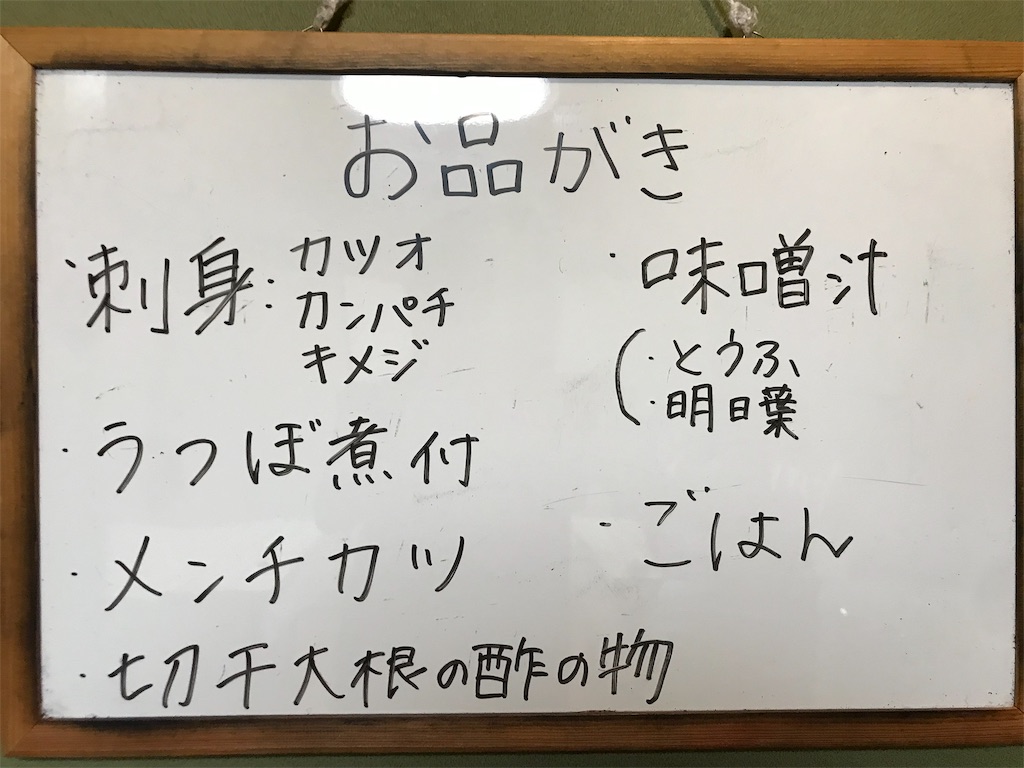 お品がき
・刺身：カツオ
カンパチ
キメジ
・うつぼ煮付
・メンチカツ
・切干大根の酢の物
・味噌汁
（・とうふ
・明日葉
・ごはん